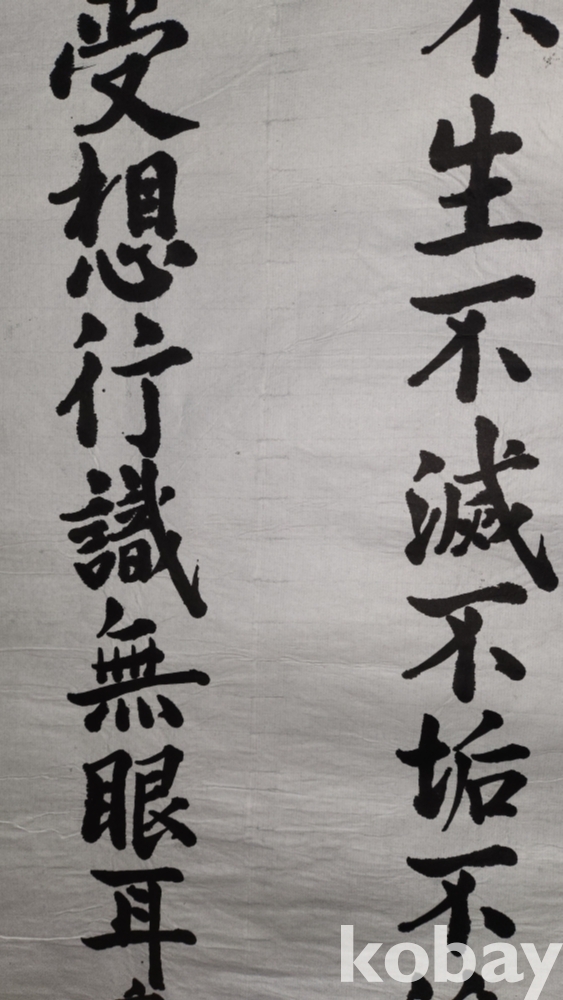 不生不滅不垢不
受想行識無眼耳
kobay